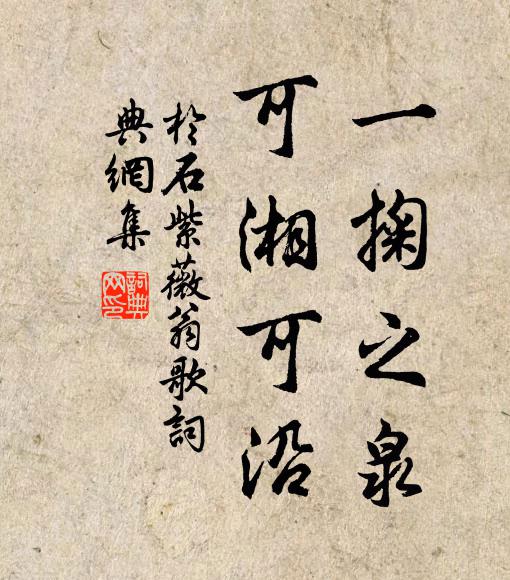 一掬之泉
可湘可沿
於石紫薇翁歌詞
典網集
詞典
网印